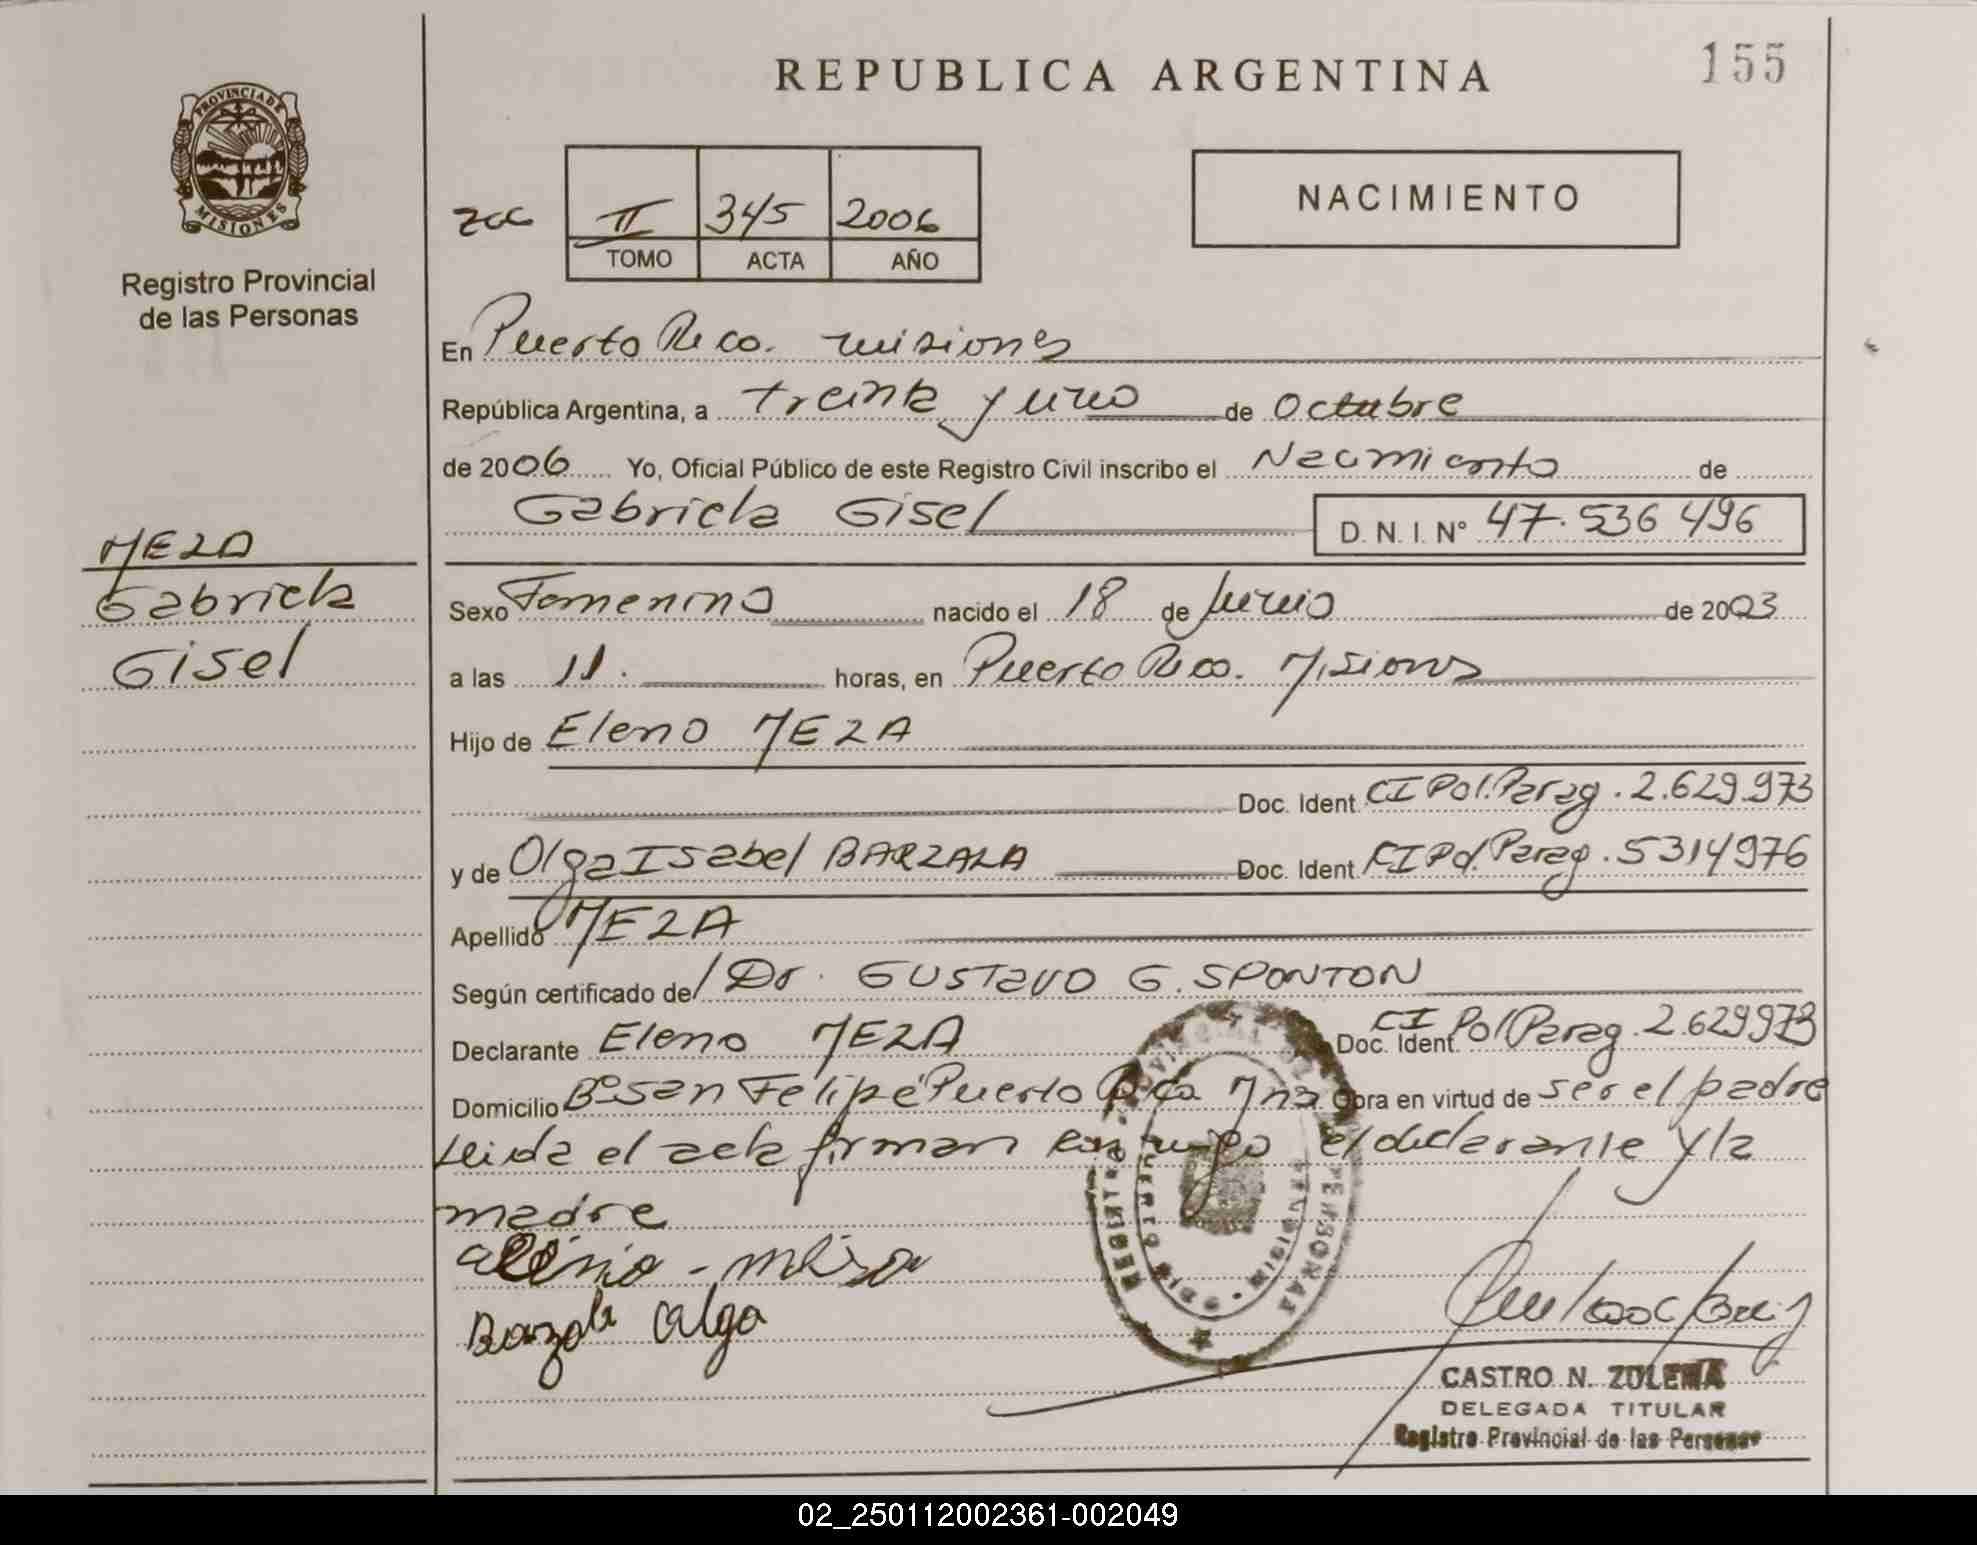 REPUBLICA ARGENTINA
155
PROVINCIA DE
MISIONES
Registro Provincial
de las Personas
II 345 2006
TOMO ACTA AÑO
NACIMIENTO
En Puerto Rico. misiones
República Argentina, a treinta y uno de Octubre
de 2006 Yo, Oficial Público de este Registro Civil inscribo el Nacimiento de
Gabriela Gisel D. N. I. Nº 47.536 496
MEZA
Gabriela
Gisel
Sexo Femenino nacido el 18 de Junio de 2003
a las 11. horas, en Puerto Rico. Misiones
Hijo de Eleno MEZA
Doc. Ident. CI Pol. Parag. 2.629.973
y de Olga Isabel BARZALA Doc. Ident. CI Pol. Parag. 5314976
Apellido MEZA
Según certificado de Dr. GUSTAVO G. SPONTON
Declarante Eleno MEZA Doc. Ident. CI Pol Parag. 2.629973
Domicilio Bº San Felipe Puerto Rico Mnes Obra en virtud de ser el padre
Leida el acta firman conmigo el declarante y la
madre
Barzala Olga
CASTRO N. ZULEMA
DELEGADA TITULAR
Registro Provincial de las Personas
02_250112002361-002049